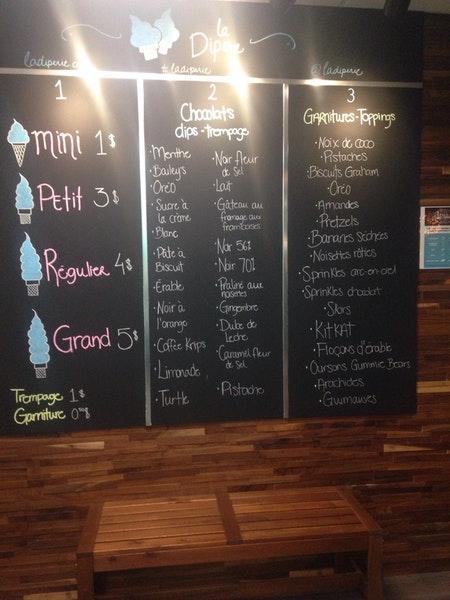 la
Diperie
ladiperie
#ladiperie
@ladiperie
1
mini 1$
Petit 3$
Régulier 4$
Grand 5$
Trempage 1$
Garniture
2
Chocolats
dips-trempage
·Menthe
·Baileys
·Oreo
·Sucre à
la crème
·Blanc
·Pâte à
Biscuit
·Érable
·Noir à
l'orange
·Coffee Krips
·Limonade
·Turtle
·Noir fleur
de sel
·Lait
·Gâteau au
fromage aux
framboises
·Noir 56%
·Noir 70%
·Praliné aux
noisettes
·Gingembre
·Dulce de
Leche
·Caramel fleur
de sel
·Pistache
3
GARNITURES-TOPPINGS
·Noix de coco
·Pistaches
·Biscuits Graham
·Oréo
·Amandes
·Pretzels
·Bananes séchées
·Noisettes rôties
·Sprinkles arc-en-ciel
·Sprinkles chocolat
·Skors
·KITKAT
·Flocons d'érable
·Oursons Gummie Bears
·Arachides
·Guimauves